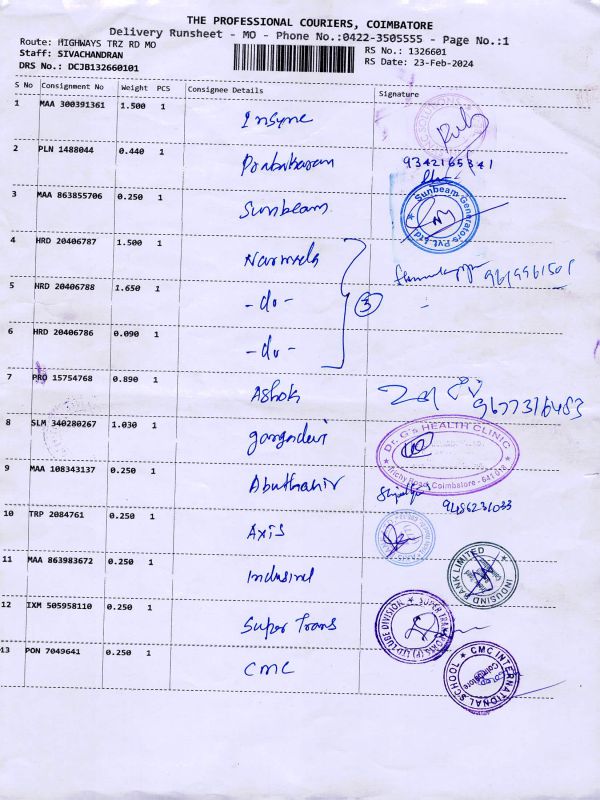 THE PROFESSIONAL COURIERS, COIMBATORE
Delivery Runsheet - MO - Phone No.:0422-3505555 - Page No.:1
Route: HIGHWAYS TRZ RD MO
RS No.: 1326601
Staff: SIVACHANDRAN
RS Date: 23-Feb-2024
DRS No.: DCJB132660101
S No Consignment No Weight PCS Consignee Details Signature
1 MAA 300391361 1.500 1 Insync
2 PLN 1488044 0.440 1 Prabhakaran 9342165341
3 MAA 863855706 0.250 1 Sunbeam
Sunbeam Generators Pvt Ltd
4 HRD 20406787 1.500 1 Narmada
5 HRD 20406788 1.650 1 -do- 3
6 HRD 20406786 0.090 1 -do-
7 PRO 15754768 0.890 1 Ashok 9677316483
8 SLM 340280267 1.030 1 gangadevi
Dr. G's HEALTH CLINIC
Trichy Road, Coimbatore - 641 018
9 MAA 108343137 0.250 1 Abuthahir 9486231033
10 TRP 2084761 0.250 1 Axis
11 MAA 863983672 0.250 1 Indusind
INDUSIND BANK LIMITED
12 IXM 505958110 0.250 1 Super Trans
LUBE DIVISION
13 PON 7049641 0.250 1 CMC
CMC INTERNATIONAL SCHOOL
Coimbatore